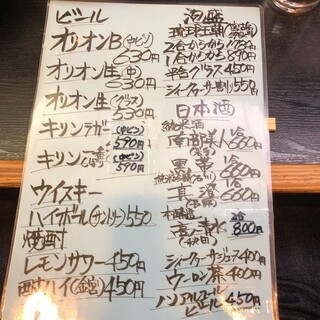 ビール
オリオンB(中ビン)
630円
オリオン生(中)
530円
オリオン生(グラス)
530円
キリンラガー(中ビン)
590円
キリン一番(中ビン)
590円
ウイスキー
ハイボール(サントリー)550
焼酎
レモンサワー450円
酎ハイ 450円
泡盛
琉球王朝
2合からから
1合から 890円
平合グラス450円
シークヮーサー割り550円
日本酒
純米酒
南部美人 660円
黒
660円
真澄
660円
本醸造
高清水
800円
シークヮーサージュース400円
ウーロン茶400円
ノンアルコール
ビール450円